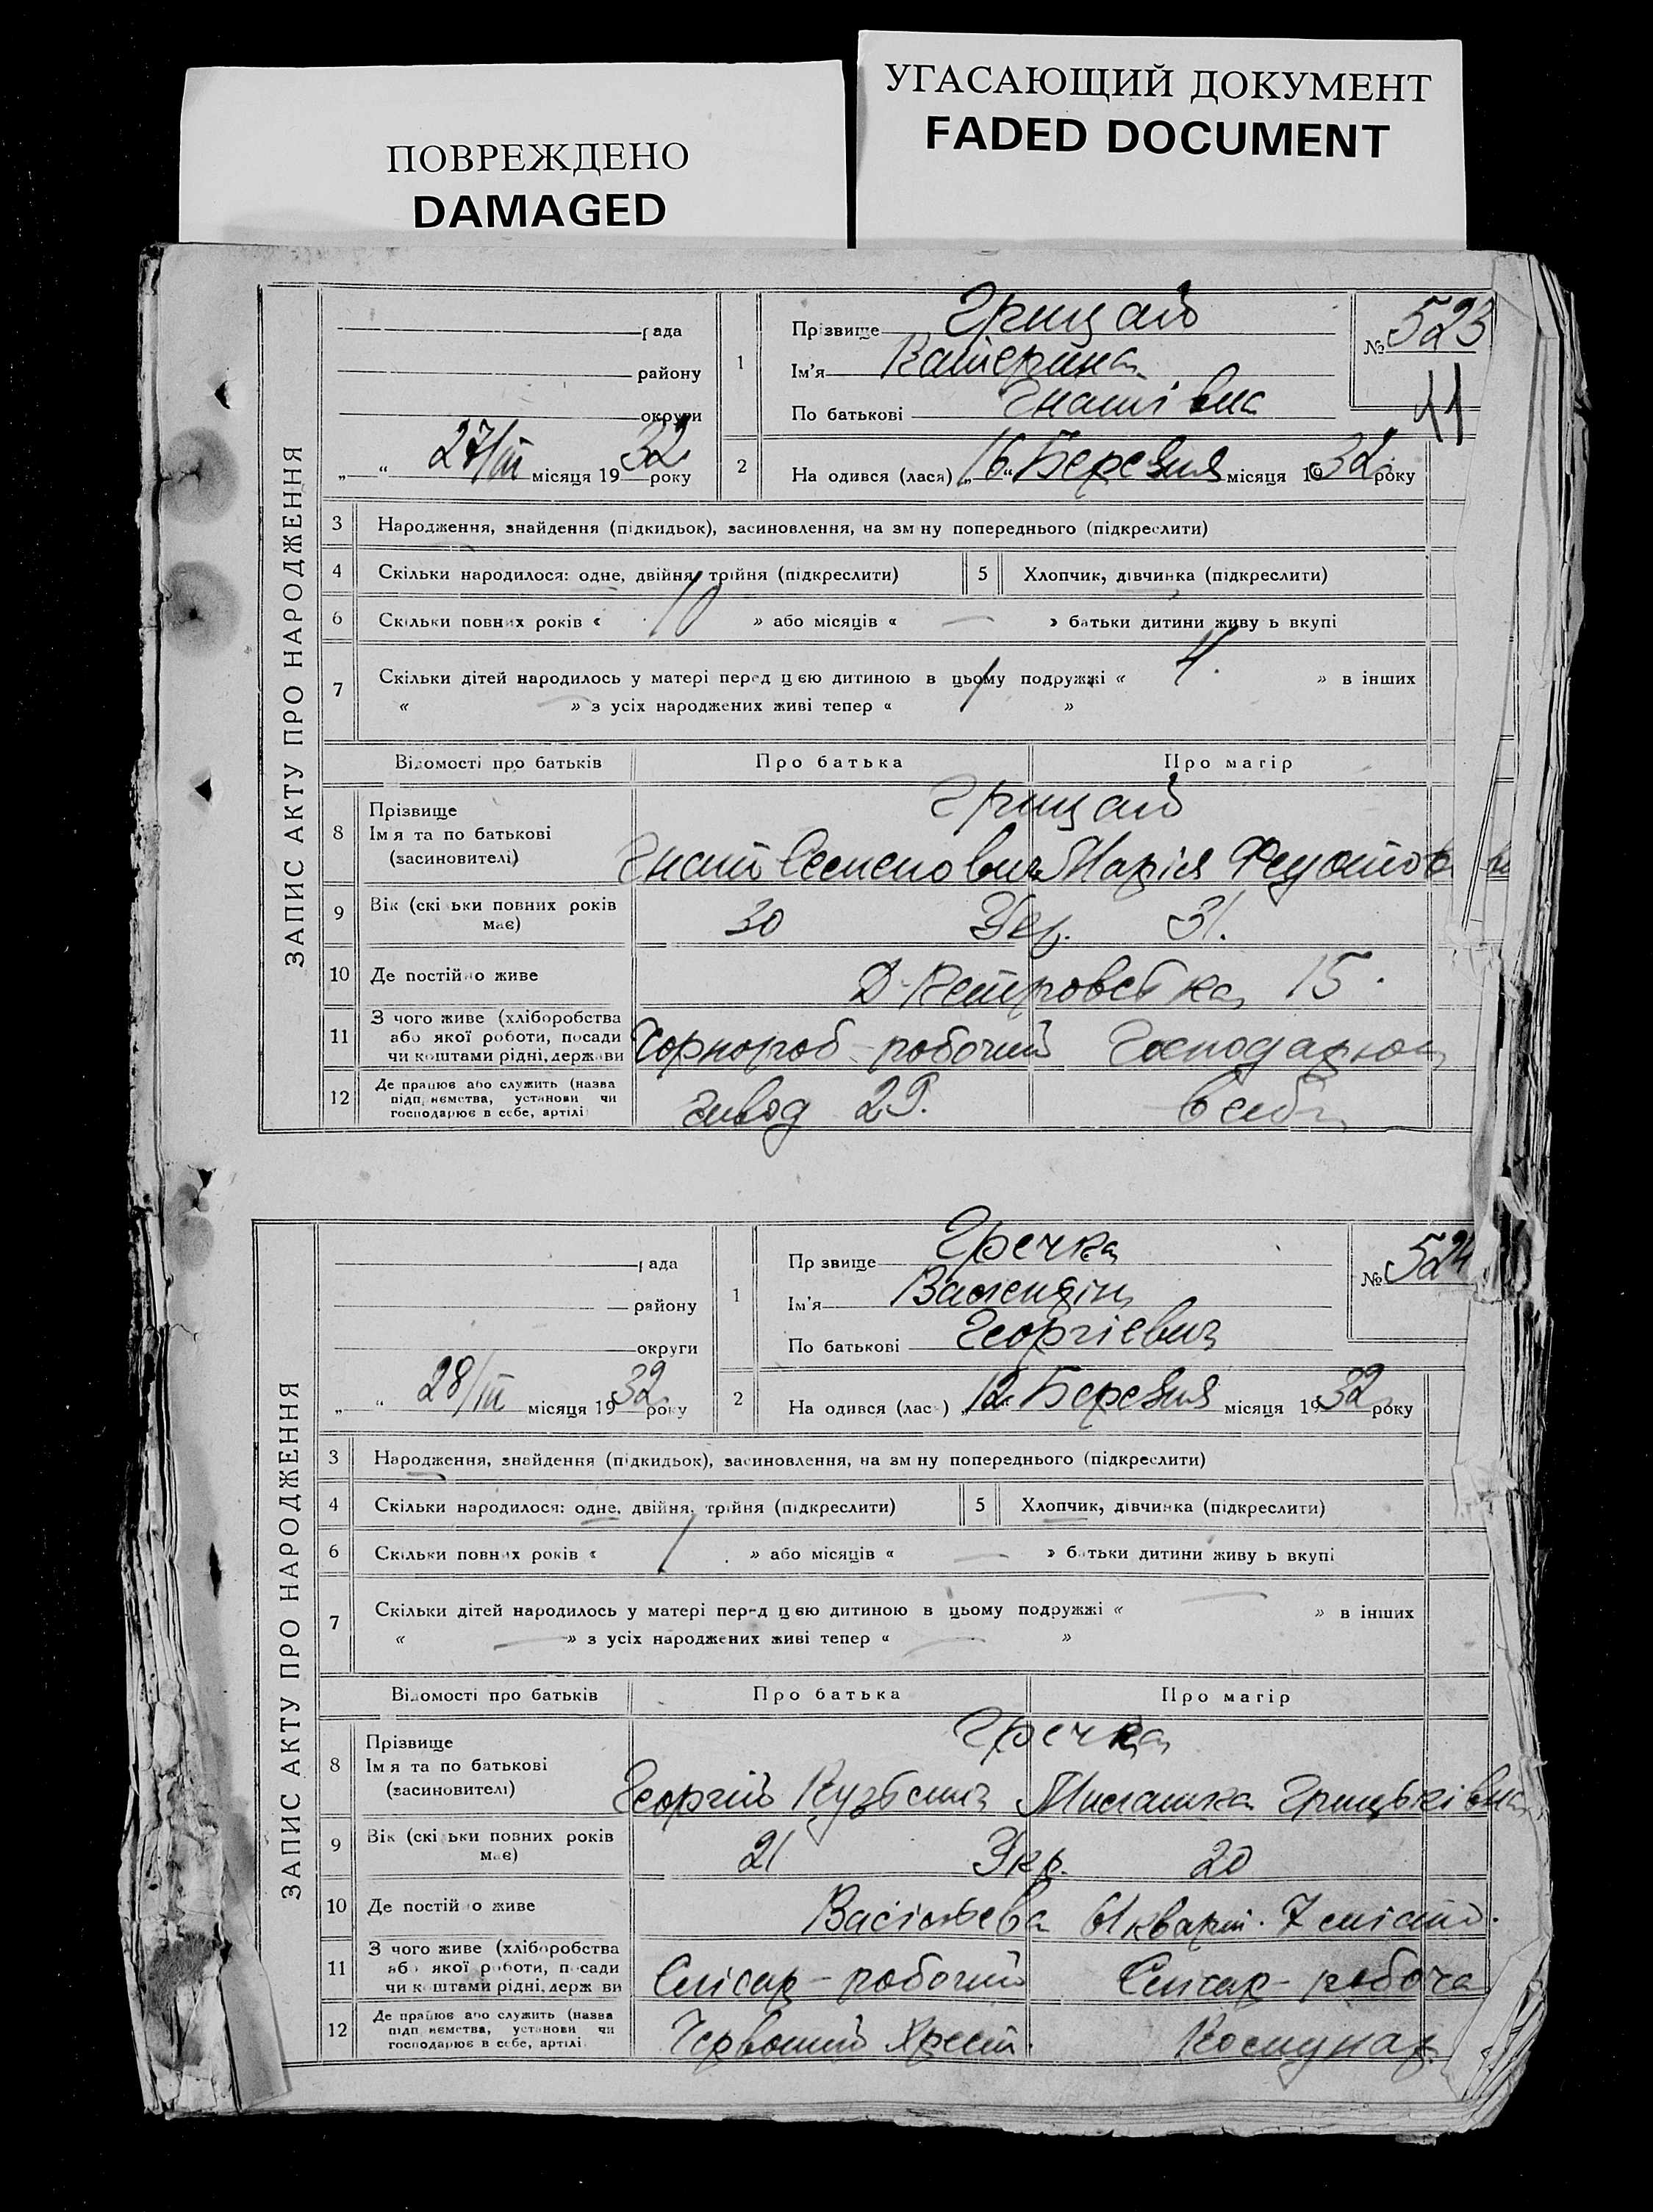 УГАСАЮЩИЙ ДОКУМЕНТ
FADED DOCUMENT
ПОВРЕЖДЕНО
DAMAGED
ЗАПИС АКТУ ПРО НАРОДЖЕННЯ
рада
району
округи
„ “ 27/III місяця 1932 року
1
Прізвище Грицай
Ім'я Катерина
По батькові Гнатівна
№ 523
11
2
На одився (лася) „16“ Березня місяця 1932 року
3 Народження, знайдення (підкидьок), засиновлення, на зм ну попереднього (підкреслити)
4 Скільки народилося: одне, двійня, трійня (підкреслити) 5 Хлопчик, дівчинка (підкреслити)
6 Скільки повних років « 10 » або місяців « — » батьки дитини живу ь вкупі
7 Скільки дітей народилось у матері перед цєю дитиною в цьому подружжі « 4. » в інших
« — » з усіх народжених живі тепер « 1 »
Відомості про батьків Про батька Про матір
8 Прізвище
Ім я та по батькові
(засиновителі)
Грицай
Гнат Семенович Марія Федотов
9 Вік (скі ьки повних років має) 30 Укр. 31.
10 Де постійно живе Д-Петровська 15.
11 З чого живе (хліборобства або якої роботи, посади чи коштами рідні, держави Чорнороб-робочий Господарює
12 Де працює або служить (назва підп иємства, установи чи господарює в себе, артілі
завод 29. в себе
ЗАПИС АКТУ ПРО НАРОДЖЕННЯ
рада
району
округи
„ “ 28/III місяця 1932 року
1
Пр звище Гречка
Ім'я Валентін
По батькові Георгієвич
№ 524
2
На одився (лас ) „12“ Березня місяця 1932 року
3 Народження, знайдення (підкидьок), засиновлення, на зм ну попереднього (підкреслити)
4 Скільки народилося: одне, двійня, трійня (підкреслити) 5 Хлопчик, дівчинка (підкреслити)
6 Скільки повних років « 1 » або місяців « — » батьки дитини живу ь вкупі
7 Скільки дітей народилось у матері перед цєю дитиною в цьому подружжі « — » в інших
« — » з усіх народжених живі тепер « — »
Відомості про батьків Про батька Про матір
8 Прізвище
Ім я та по батькові
(засиновителі)
Гречка
Георгій Кузьмич Миланка Грицьківна
9 Вік (скі ьки повних років має) 21 Укр. 20
10 Де постій о живе Васільєва кварт. 7
11 З чого живе (хліборобства або якої роботи, посади чи к штами рідні, держ ви Слісар-робочий Слисар-робоча
12 Де працює або служить (назва підп иємства, установи чи господарює в себе, артілі
Червоний Хрест. Комунар